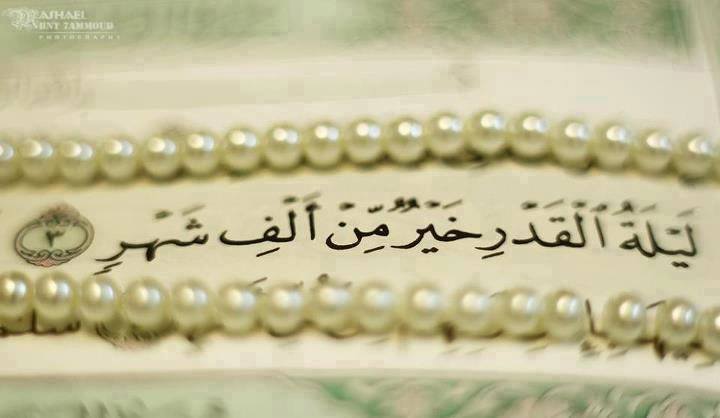 RASHAEL
BINT 7AMMOUD
PHOTOGRAPHY
لَيْلَةُ الْقَدْرِ خَيْرٌ مِّنْ أَلْفِ شَهْرٍ ٣